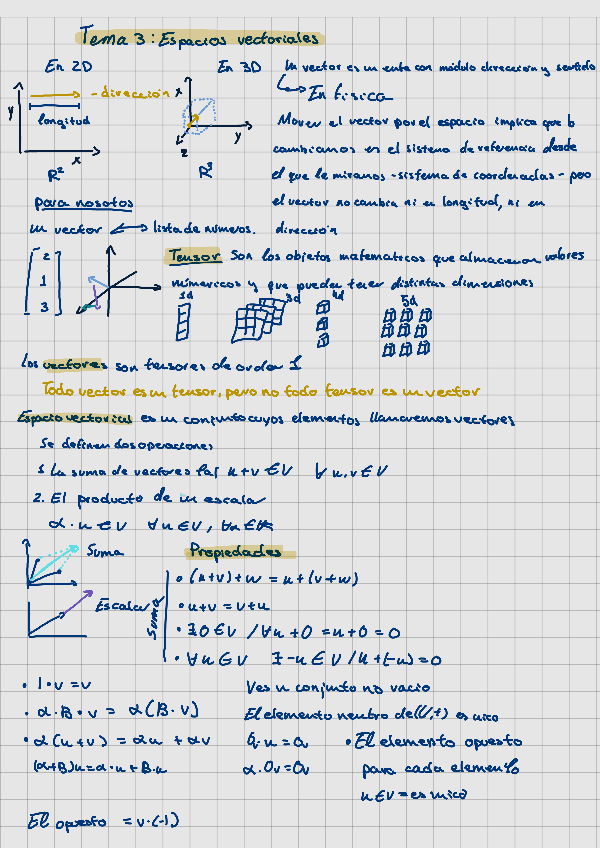 Tema 3: Espacios vectoriales
En 2D
En 3D
Un vector es un ente con módulo dirección y sentido
- dirección
En física
longitud
y
x
R²
x
y
z
R³
Mover el vector por el espacio implica que lo
cambiamos en el sistema de referencia desde
el que le miramos - sistema de coordenadas - pero
el vector no cambia ni en longitud, ni en
dirección
para nosotros
un vector ⟷ lista de números.
2
1
3
Tensor Son los objetos matematicos que almacenan valores
númericos y que pueden tener distintas dimensiones
1d
3d
4d
5d
Los vectores son tensores de orden 1
Todo vector es un tensor, pero no todo tensor es un vector
Espacio vectorial es un conjunto cuyos elementos llamaremos vectores
Se definen dos operaciones
1. La suma de vectores tal u+v ∈ V ∀ u,v ∈ V
2. El producto de un escala
α · u ∈ V ∀u ∈ V,
Suma
Escalar
Propiedades
Suma
• (u+v)+w = u+(v+w)
• u+v = v+u
• ∃ 0 ∈ V / ∀u + 0 = u + 0 = 0
• ∀u ∈ V ∃ -u ∈ V / u + (-u) = 0
• 1 · v = v
• α · B · v = α (B · v)
• α (u+v) = αu + αv
(α+B)u = α · u + B · u
V es un conjunto no vacio
El elemento neutro de (V,+) es unico
0 · u = 0v
α · 0v = 0v
• El elemento opuesto
para cada elemento
u ∈ V = es unico
El opuesto = v · (-1)